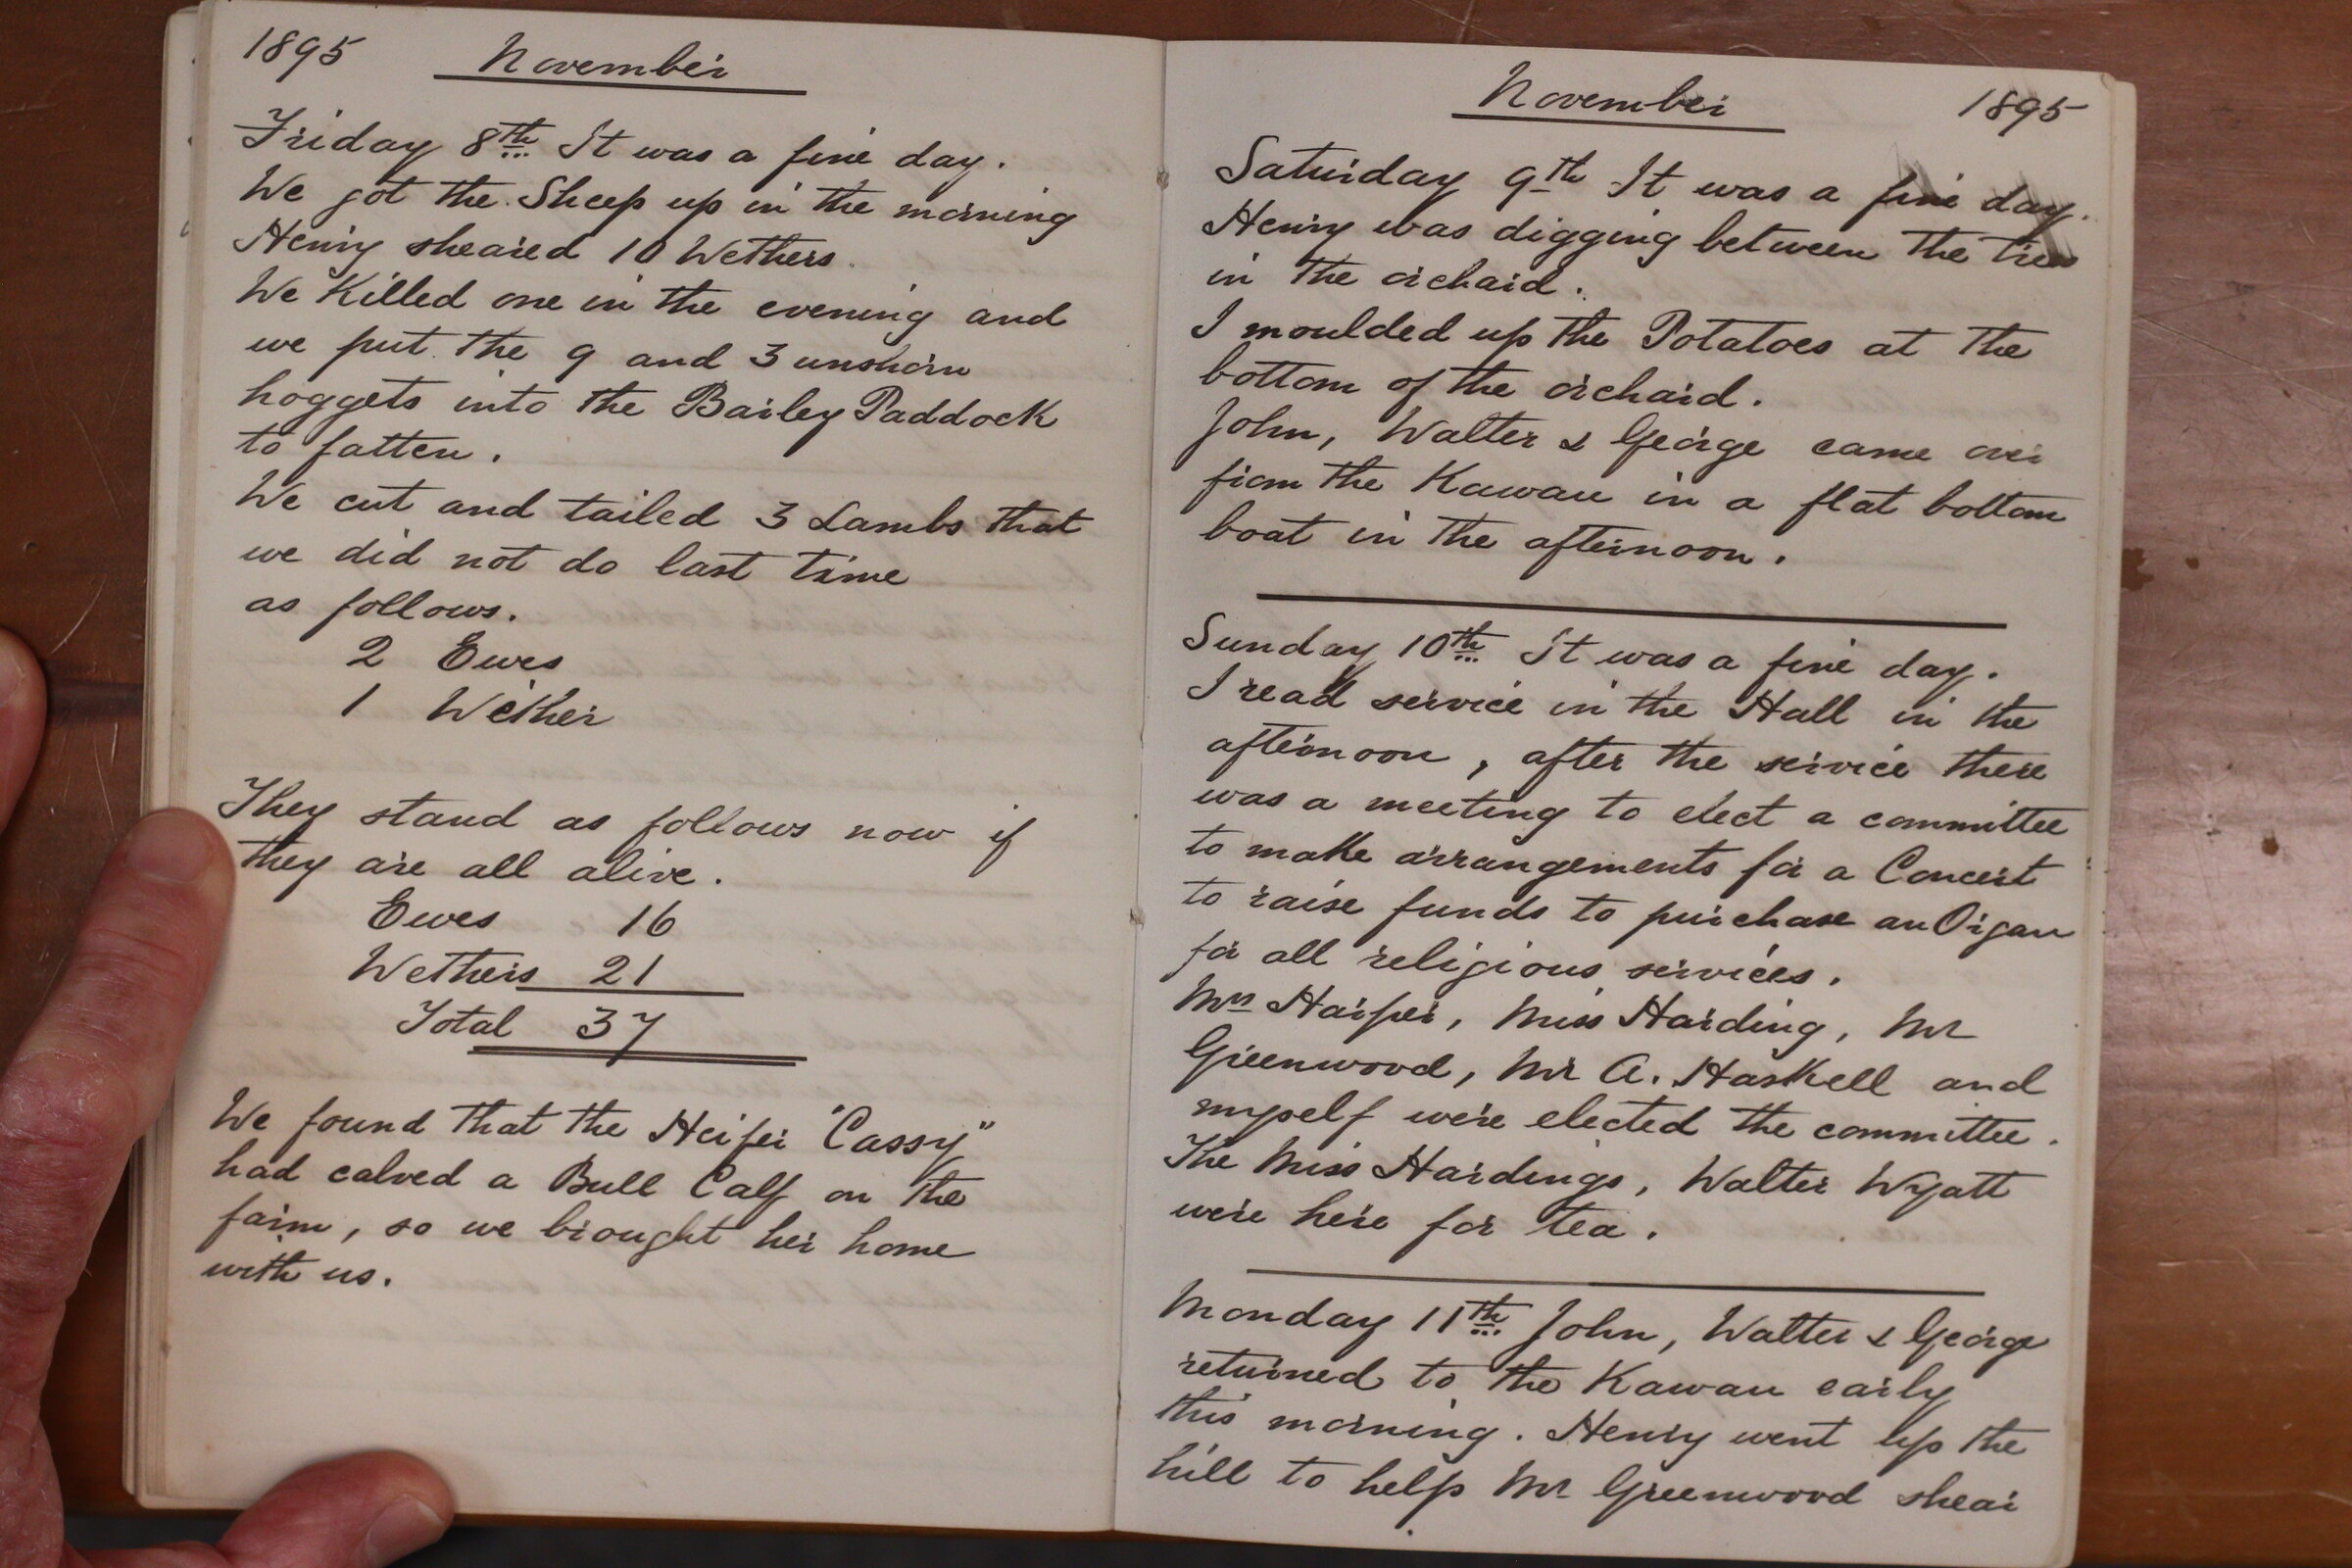 1895 November
Friday 8th It was a fine day.
We got the Sheep up in the morning
Henry sheared 10 Wethers.
We Killed one in the evening and
we put the 9 and 3 unshorn
hoggets into the Bailey Paddock
to fatten.
We cut and tailed 3 Lambs that
we did not do last time
as follows.
2 Ewes
1 Wether
They stand as follows now if
they are all alive.
Ewes 16
Wethers 21
Total 37
We found that the Heifer "Cassy"
had calved a Bull Calf on the
farm, so we brought her home
with us.
November 1895
Saturday 9th It was a fine day.
Henry was digging between the trees
in the orchard.
I moulded up the Potatoes at the
bottom of the orchard.
John, Walter & George came over
from the Kawau in a flat bottom
boat in the afternoon.
Sunday 10th It was a fine day.
I read service in the Hall in the
afternoon, after the service there
was a meeting to elect a committee
to make arrangements for a Concert
to raise funds to purchase an Organ
for all religious services.
Mrs Harper, Miss Harding, Mr
Greenwood, Mr A. Haskell and
myself were elected the committee.
The Miss Hardings, Walter Wyatt
were here for tea.
Monday 11th John, Walter & George
returned to the Kawau early
this morning. Henry went up the
hill to help Mr Greenwood shear